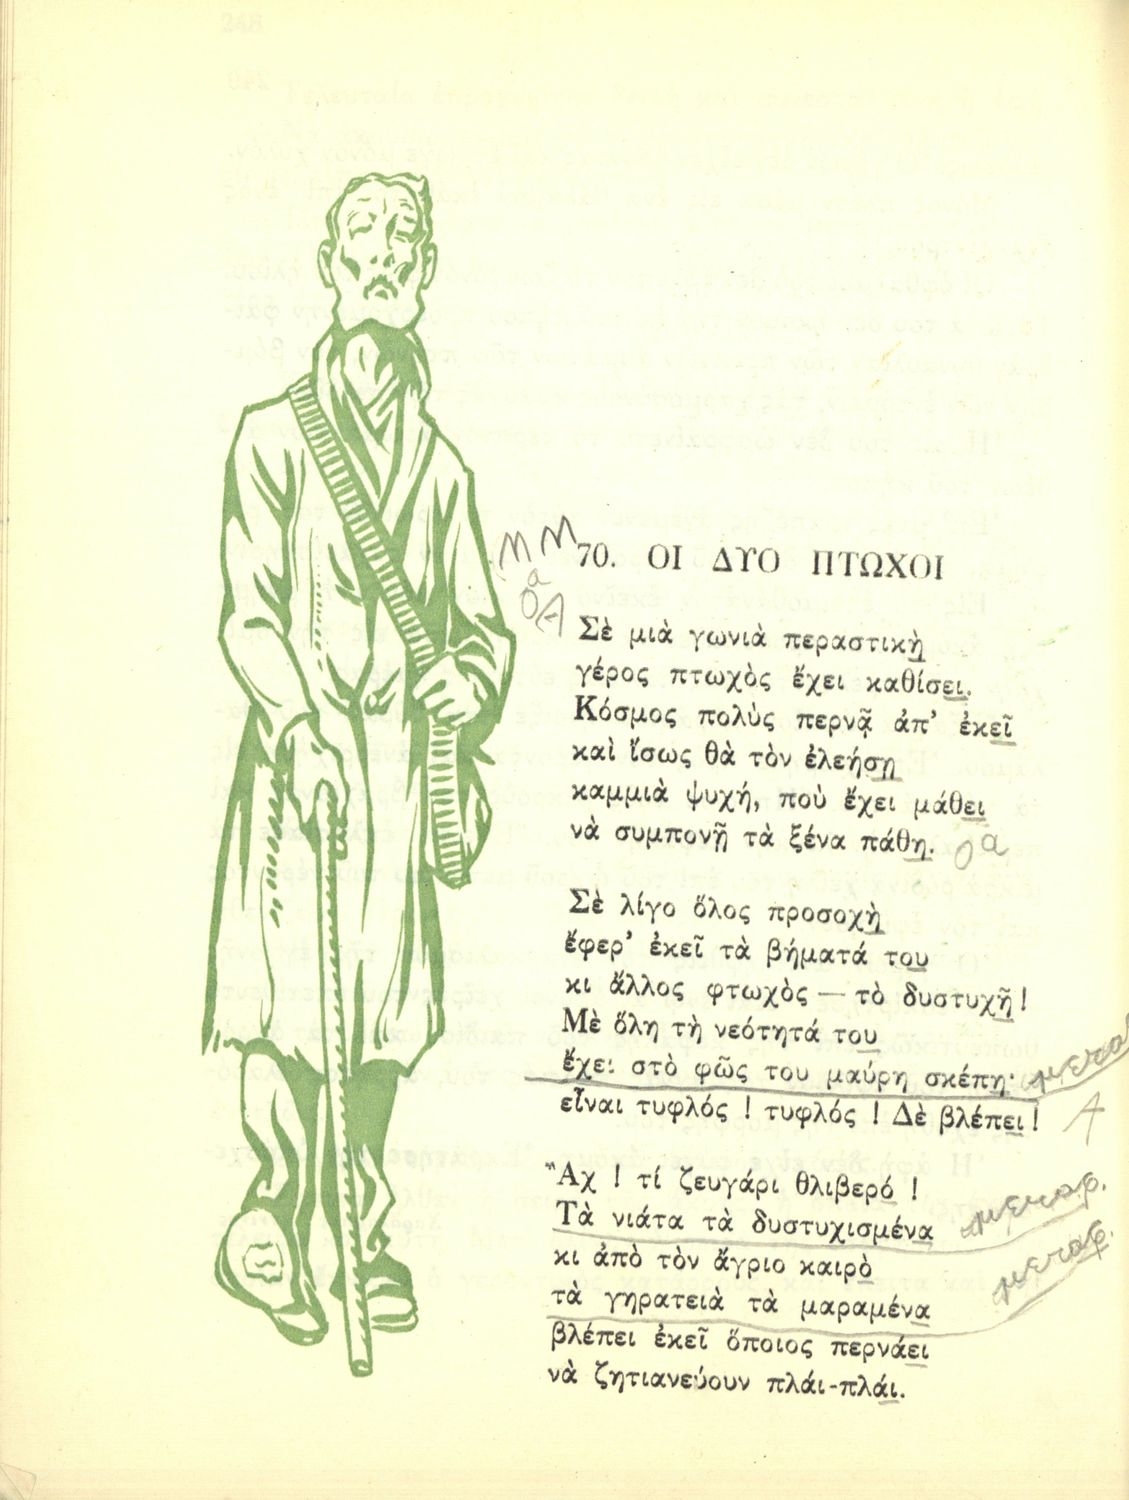 70. ΟΙ ΔΥΟ ΠΤΩΧΟΙ
Σὲ μιὰ γωνιὰ περαστικὴ
γέρος πτωχὸς ἔχει καθίσει.
Κόσμος πολὺς περνᾷ ἀπ' ἐκεῖ
καὶ ἴσως θὰ τὸν ἐλεήση
καμμιὰ ψυχή, ποὺ ἔχει μάθει
νὰ συμπονῇ τὰ ξένα πάθη.
Σὲ λίγο ὅλος προσοχὴ
ἔφερ' ἐκεῖ τὰ βήματά του
κι ἄλλος φτωχὸς — τὸ δυστυχῆ!
Μὲ ὅλη τὴ νεότητά του
ἔχει στὸ φῶς του μαύρη σκέπη· μεταφ.
εἶναι τυφλός! τυφλός! Δὲ βλέπει!
Ἂχ! τί ζευγάρι θλιβερό!
Τὰ νιάτα τὰ δυστυχισμένα μεταφ.
κι ἀπὸ τὸν ἄγριο καιρὸ
τὰ γηρατειὰ τὰ μαραμένα μεταφ.
βλέπει ἐκεῖ ὅποιος περνάει
νὰ ζητιανεύουν πλάι-πλάι.